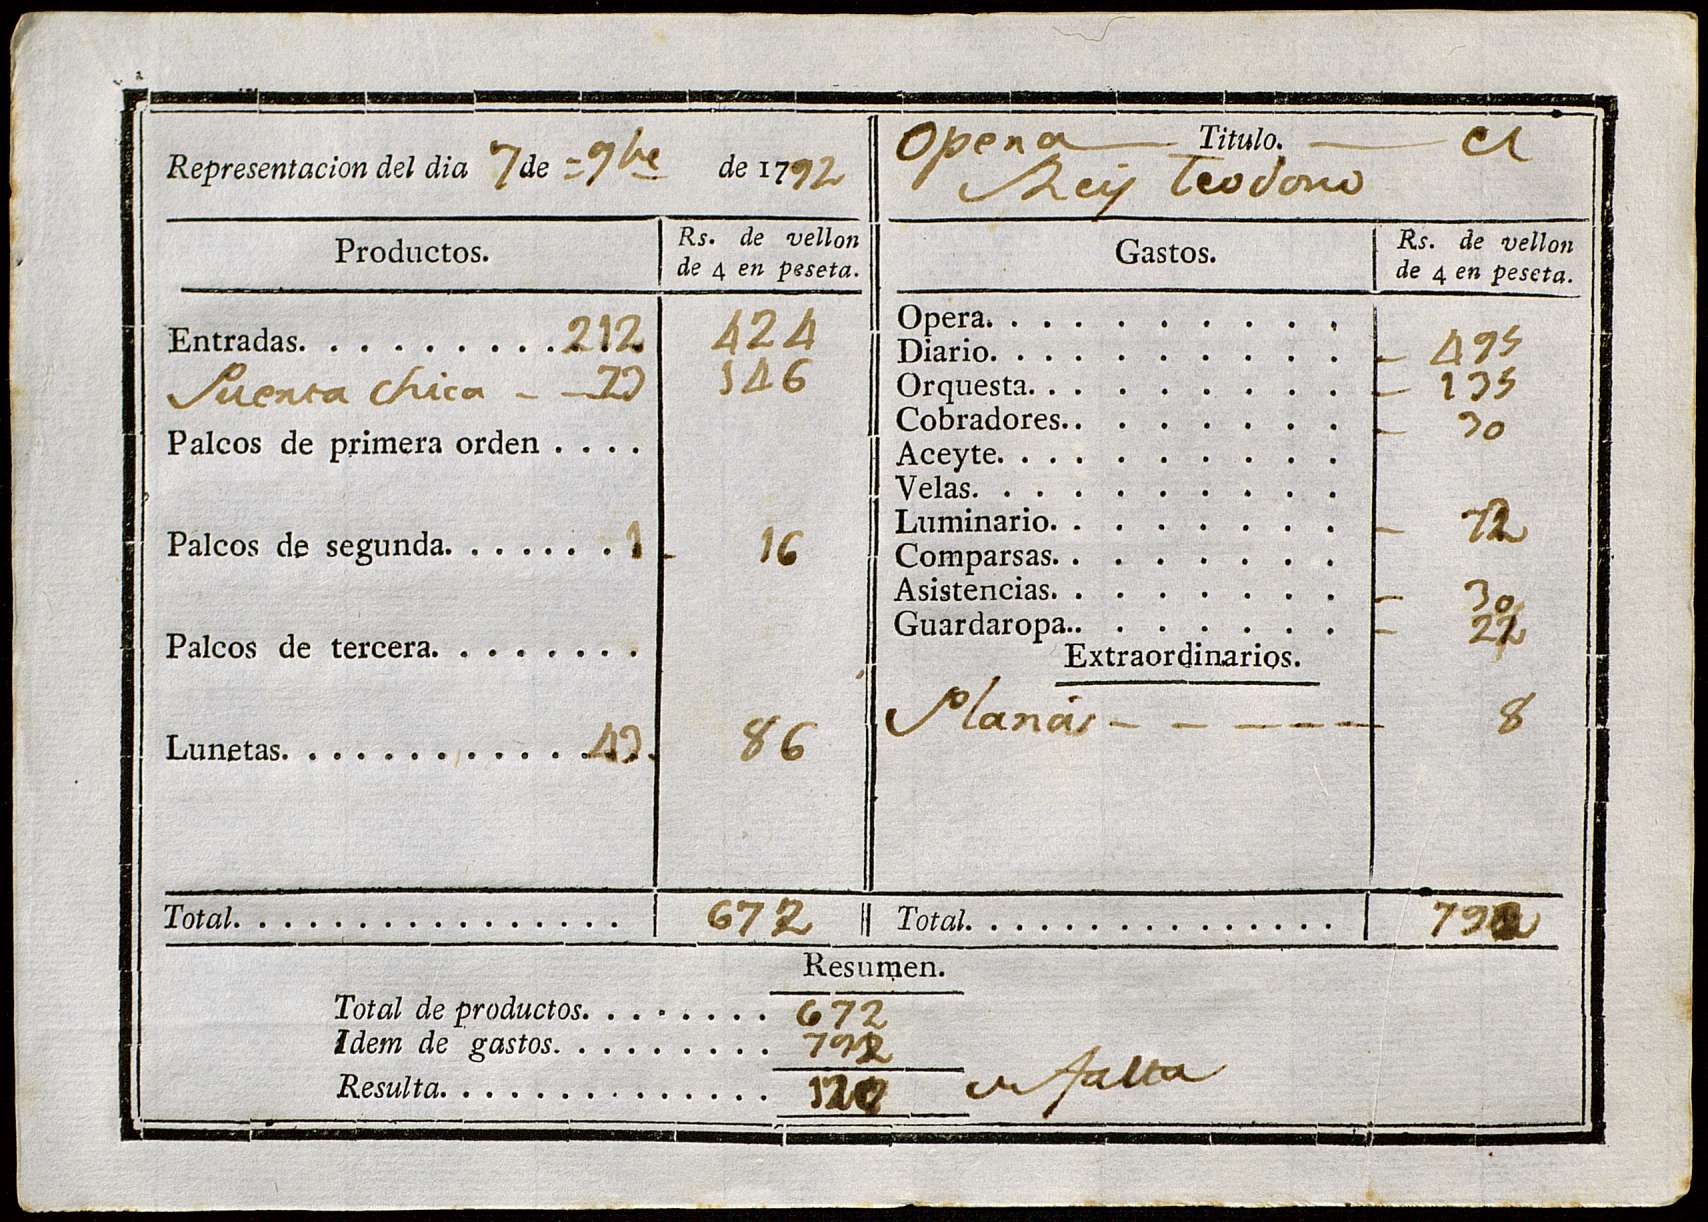 Representacion del dia 7 de =9bre de 1792
Productos.
Rs. de vellon
de 4 en peseta.
Entradas. . . . . . . . . . 212 424
Puerta chica - - 73 146
Palcos de primera orden . . . .
Palcos de segunda. . . . . . . 1 - 16
Palcos de tercera. . . . . . . .
Lunetas. . . . . . . . . . . . . 43 86
Total. . . . . . . . . . . . . . . . 672
Opera — Titulo. — el
Rey Teodoro
Gastos.
Rs. de vellon
de 4 en peseta.
Opera. . . . . . . . . .
Diario. . . . . . . . . . - 495
Orquesta. . . . . . . . . - 135
Cobradores. . . . . . . . - 30
Aceyte. . . . . . . . . .
Velas. . . . . . . . . .
Luminario. . . . . . . . - 72
Comparsas. . . . . . . .
Asistencias. . . . . . . . - 30
Guardaropa. . . . . . . . - 22
Extraordinarios.
Planás - - - - - 8
Total. . . . . . . . . . . . . . . 792
Resumen.
Total de productos. . . . . . . . 672
Idem de gastos. . . . . . . . . 792
Resulta. . . . . . . . . . . . . . 120 falta